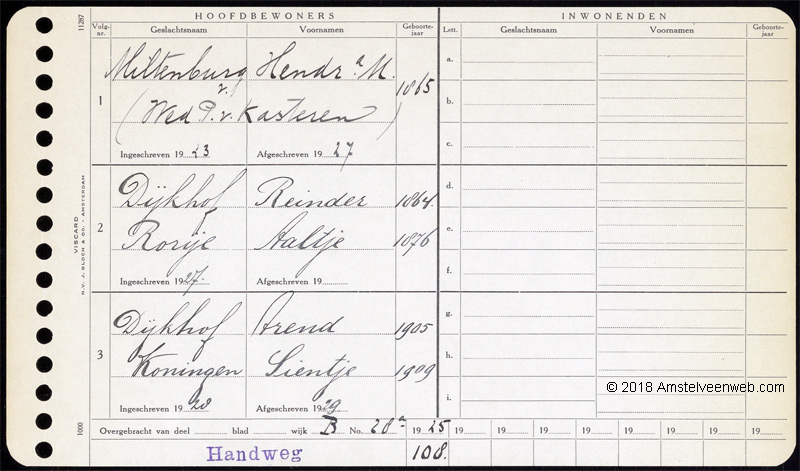 11287
HOOFDBEWONERS
INWONENDEN
Volg-
nr.
Geslachtsnaam
Voornamen
Geboorte-
jaar
Lett.
Geslachtsnaam
Voornamen
Geboorte-
jaar
Miltenburg Hendr.a M.
v.
1865
1
(Wed P. v. Kasteren)
Ingeschreven 1923
Afgeschreven 1927
Dijkhof Reinder 1864.
2
Rorije Aaltje 1876
Ingeschreven 1927.
Afgeschreven 19
Dijkhof Arend 1905
3
Koningen Sientje 1909
Ingeschreven 1928
Afgeschreven 1929
a.
b.
c.
d.
e.
f.
g.
h.
i.
VISCARD
N.V. J. BLOEM & CO. - AMSTERDAM
1000
Overgebracht van deel blad wijk B No. 28a 1925 19 19 19 19 19 19 19 19
Handweg
108.
© 2018 Amstelveenweb.com